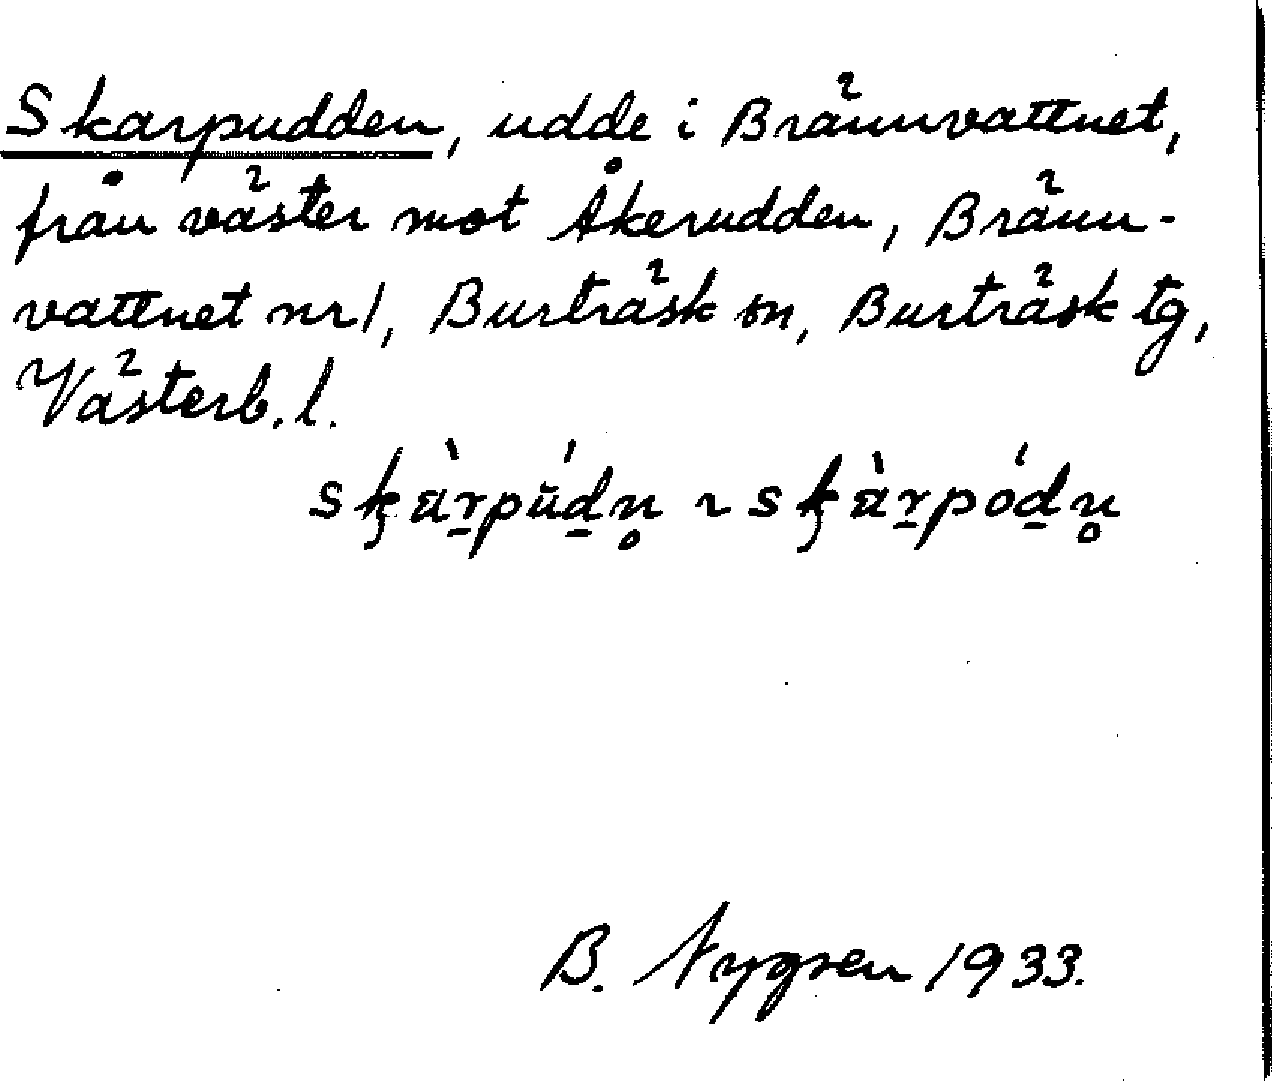 Skarpudden, udde i Brännvattnet,
från väster mot Åkerudden, Bränn-
vattnet nr 1, Burträsk sn, Burträsk tg,
Västerb. l.
sk̨àr̠pŭ́d̠n̥ ~ sk̨àr̠pód̠n̥
B. Nygren 1933.